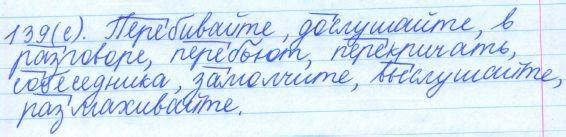 139(с). Перебивайте, дослушайте, в
разговоре, перебьют, перекричать,
собеседника, замолчите, выслушайте,
размахивайте.